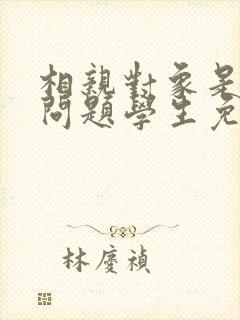 相親對象是
問題學生免
林慶禎